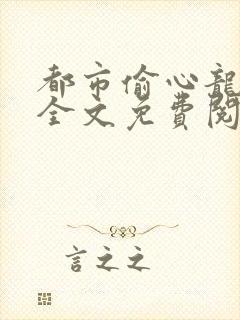 都市偷心龍
全文免費閱
言之之